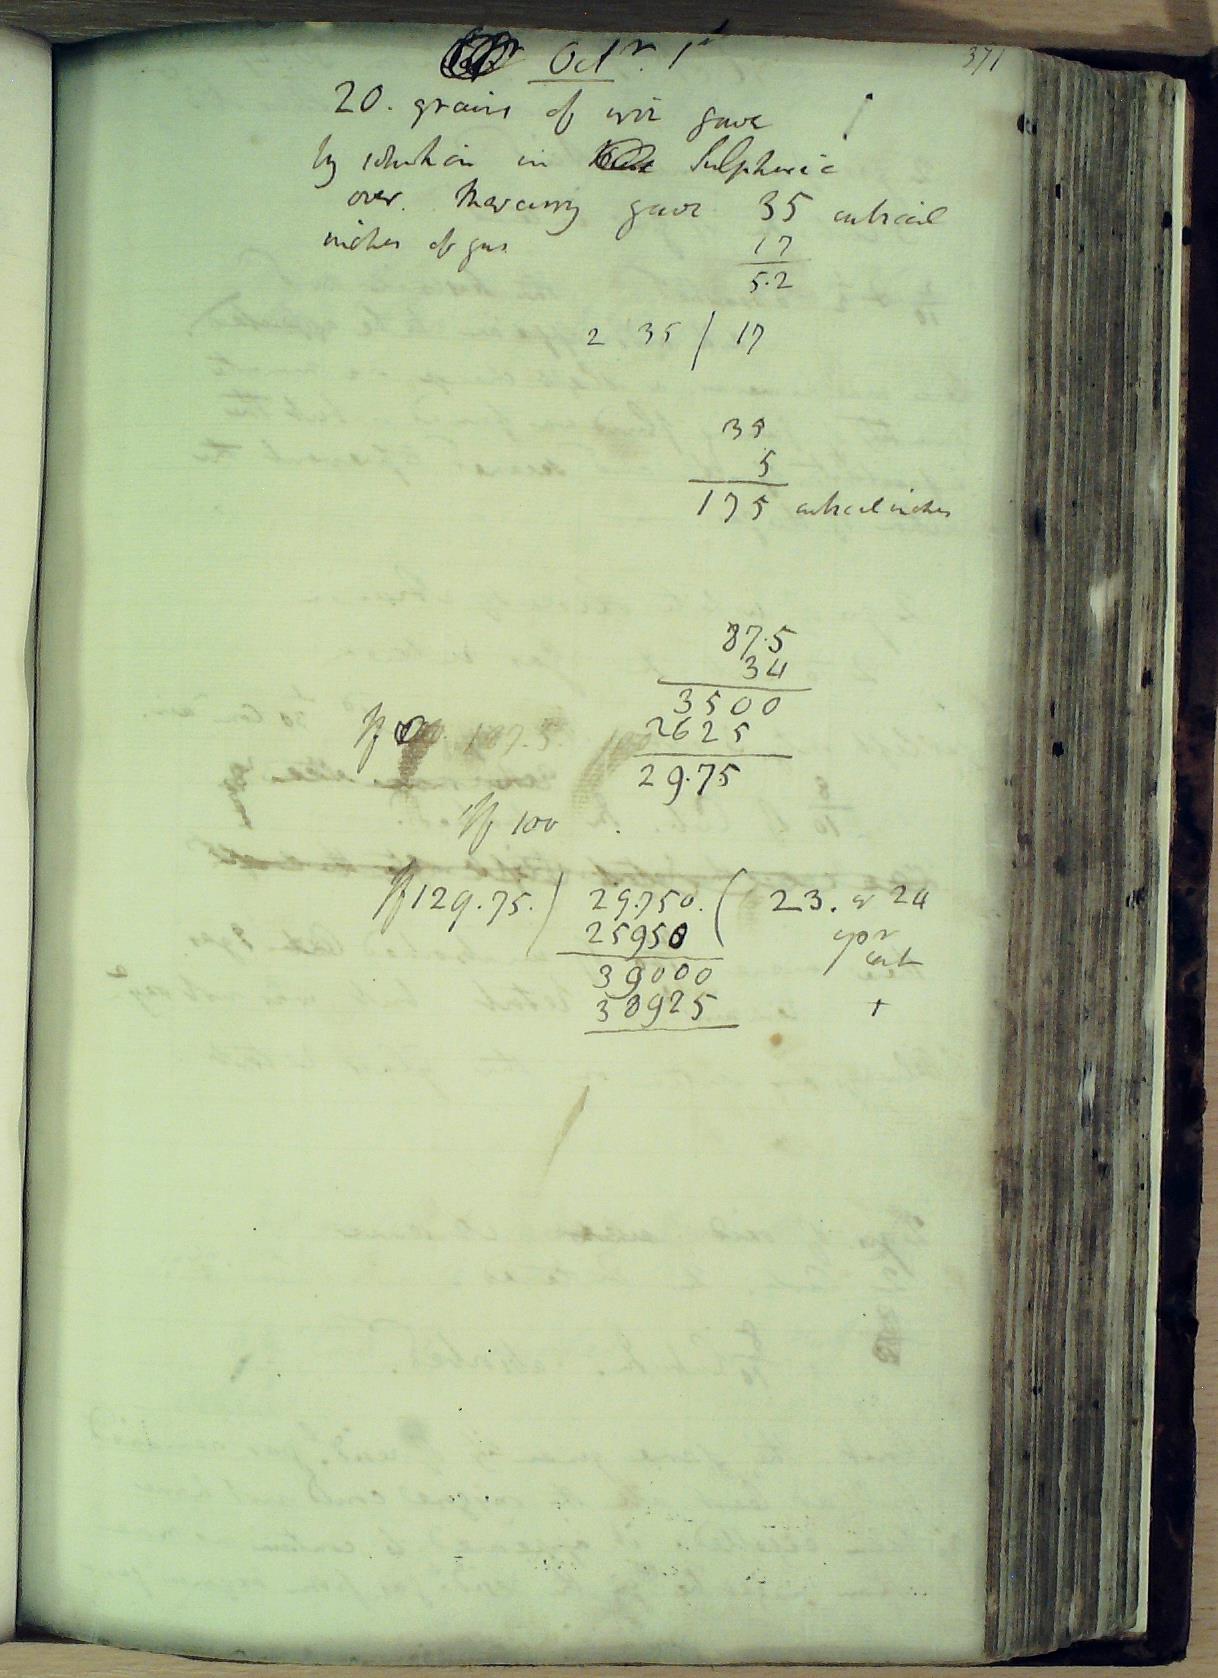 Octr. 1st
371
20. grains of wire gave
by solution in Sulphuric
over. Mercury gave 35 cubical
inches of gas
17
5.2
2 35 / 17
35
5
175 cubical inches
87.5
34
3500
2625
29.75
If 107.5. 100
If 100
If 129.75.) 29.750. ( 23. or 24
25950 pr
39000 cent
38925 +